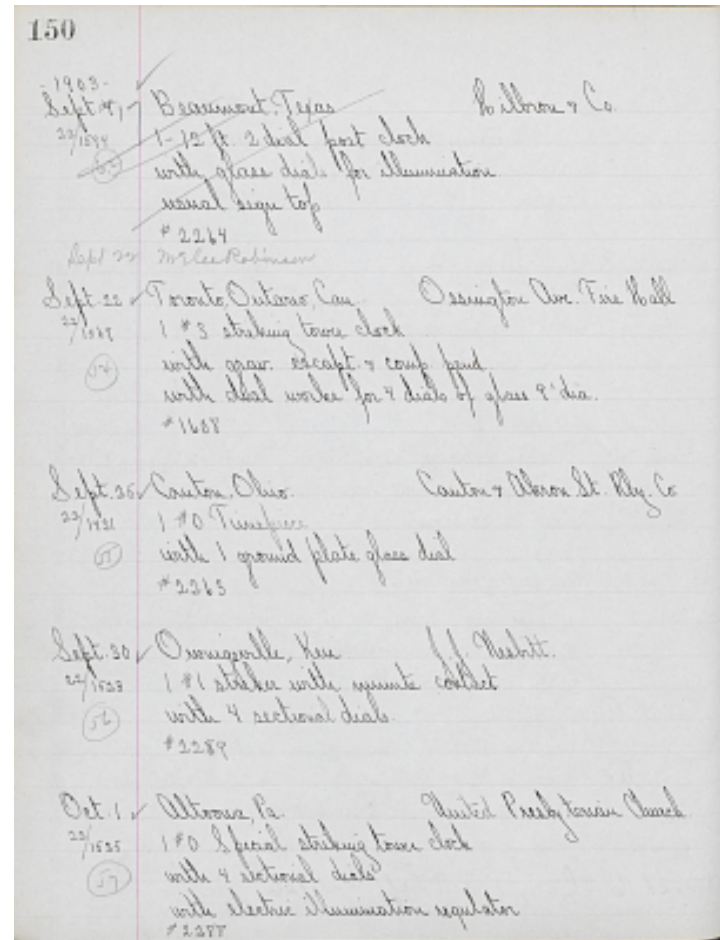 150
-1903-
Sept. 4, Beaumont, Texas Hilbron & Co.
1-12 ft. 2 dial post clock
with glass dials for illumination
usual sign top
#2264
Sept 22 McGee Robinson
Sept. 22 Toronto, Ontario, Can Ossington Ave. Fire Hall
1 #3 striking tower clock
with grav. escapt. & comp. pend.
with dial works for 4 dials of glass 8' dia.
#1608
Sept. 25 Canton, Ohio. Canton & Akron St. Rly. Co
22/1431 1 #0 Timepiece
with 1 ground plate glass dial
#2263
Sept. 30 Owingsville, Ken J. J. Nesbitt.
22/1523 1 #1 striker with minute contact
56 with 4 sectional dials.
#2289
Oct. 1 Altoona, Pa. United Presbyterian Church
22/1535 1 #0 Special striking tower clock
57 with 4 sectional dials
with electric illumination regulator
#2277